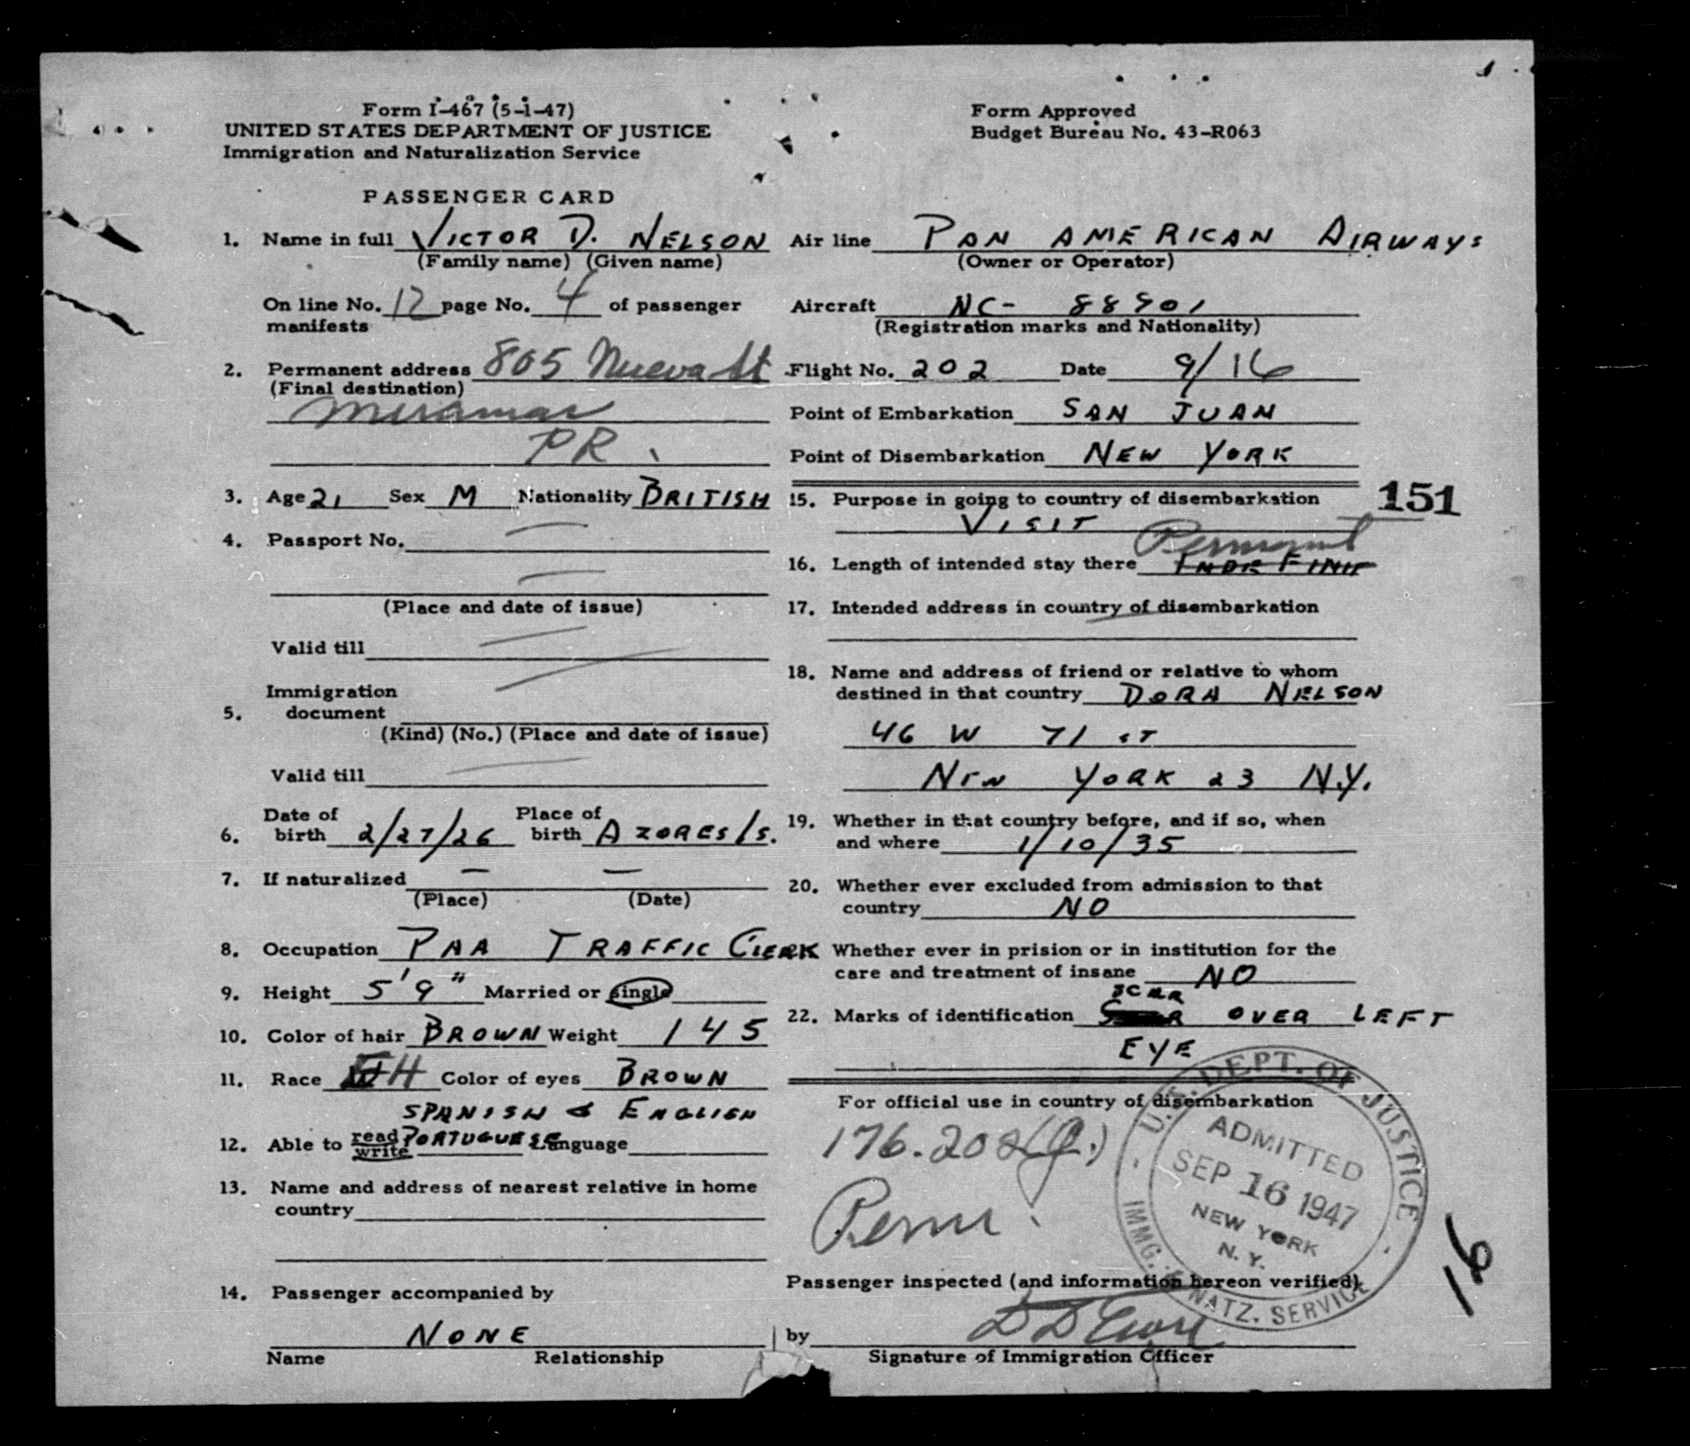 Form I-467 (5-1-47)
UNITED STATES DEPARTMENT OF JUSTICE
Immigration and Naturalization Service
Form Approved
Budget Bureau No. 43-R063
PASSENGER CARD
1. Name in full VICTOR D. NELSON
(Family name) (Given name)
On line No. 12 page No. 4 of passenger
manifests
2. Permanent address 805 Nueva St
(Final destination)
Miramar
P.R.
3. Age 21 Sex M Nationality BRITISH
4. Passport No. —
—
(Place and date of issue)
Valid till —
Immigration
5. document —
(Kind) (No.) (Place and date of issue)
Valid till —
Date of Place of
6. birth 2/27/26 birth AZORES Is.
7. If naturalized — —
(Place) (Date)
8. Occupation PAA TRAFFIC CLERK
9. Height 5'9" Married or single
10. Color of hair BROWN Weight 145
11. Race H Color of eyes BROWN
SPANISH & ENGLISH
12. Able to read PORTUGUESE Language
write
13. Name and address of nearest relative in home
country
14. Passenger accompanied by
NONE
Name Relationship
Air line PAN AMERICAN AIRWAYS
(Owner or Operator)
Aircraft NC- 88901
(Registration marks and Nationality)
Flight No. 202 Date 9/16
Point of Embarkation SAN JUAN
Point of Disembarkation NEW YORK
15. Purpose in going to country of disembarkation
VISIT
151
Permanent
16. Length of intended stay there INDEFINIT
17. Intended address in country of disembarkation
18. Name and address of friend or relative to whom
destined in that country DORA NELSON
46 W 71 ST
NEW YORK 23 N.Y.
19. Whether in that country before, and if so, when
and where 1/10/35
20. Whether ever excluded from admission to that
country NO
Whether ever in prision or in institution for the
care and treatment of insane NO
SCAR
22. Marks of identification OVER LEFT
EYE
For official use in country of disembarkation
176.202
Perm.
U.S. DEPT. OF JUSTICE
ADMITTED
SEP 16 1947
NEW YORK
N.Y.
IMMG. & NATZ. SERVICE
16
Passenger inspected (and information hereon verified)
by
Signature of Immigration Officer